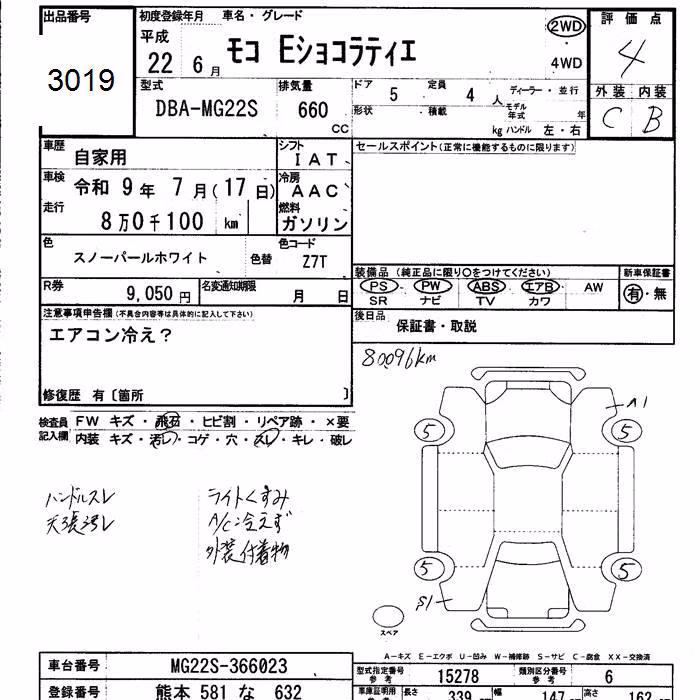 出品番号
3019
初度登録年月 車名・グレード
平成
22 6月 モコ Eショコラティエ
2WD
4WD
評価点
4
外装 内装
C B
型式 排気量
DBA-MG22S 660 CC
ドア 5 定員 4 人 ディーラー・並行
形状 積載 kg モデル年式 年
ハンドル 左・右
車歴 自家用
シフト IAT
セールスポイント(正常に機能するものに限ります)
車検 令和 9年 7月(17日)
冷房 AAC
走行 8万0千100 km
燃料 ガソリン
色 スノーパールホワイト 色替
色コード Z7T
装備品 (純正品に限り○をつけてください) 新車保証書
PS・PW・ABS・エアB・AW 有・無
SR ナビ TV カワ
R券 9,050円 名変通知期限 月 日
後日品 保証書・取説
注意事項申告欄(不具合内容等は具体的に記入して下さい)
エアコン冷え?
修復歴 有〔箇所 〕
80096km
検査員記入欄
FW キズ・飛石・ヒビ割・リペア跡・×要
内装 キズ・汚レ・コゲ・穴・スレ・キレ・破レ
ハンドルスレ
天張汚レ
ライトくすみ
A/C冷えず
外装付着物
A1
5 5
5 5
S1
スペア
A-キズ E-エクボ U-凹み W-補修跡 S-サビ C-腐食 XX-交換済
車台番号 MG22S-366023
登録番号 熊本 581 な 632
型式指定番号 参考 15278 類別区分番号 参考 6
車庫証明用 長さ 339 幅 147 高さ 162